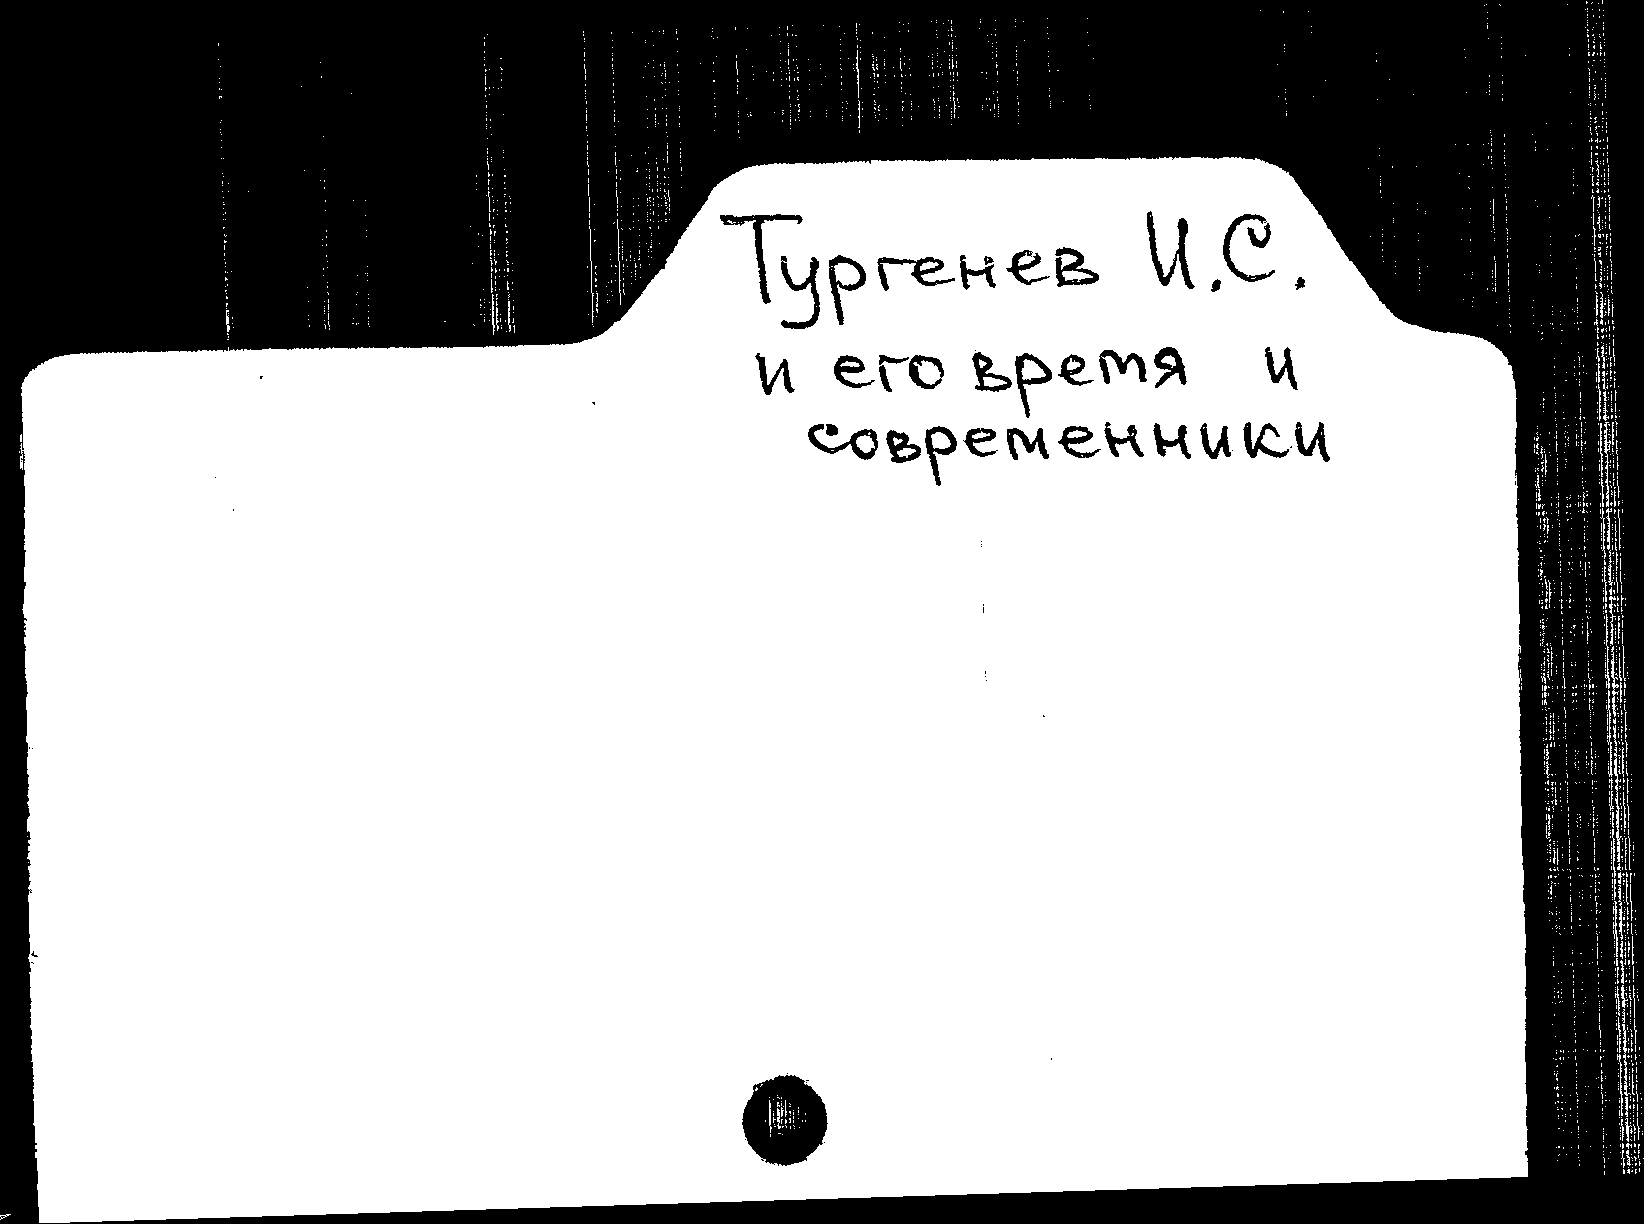 Тургенев И.С.
и его время и
современники